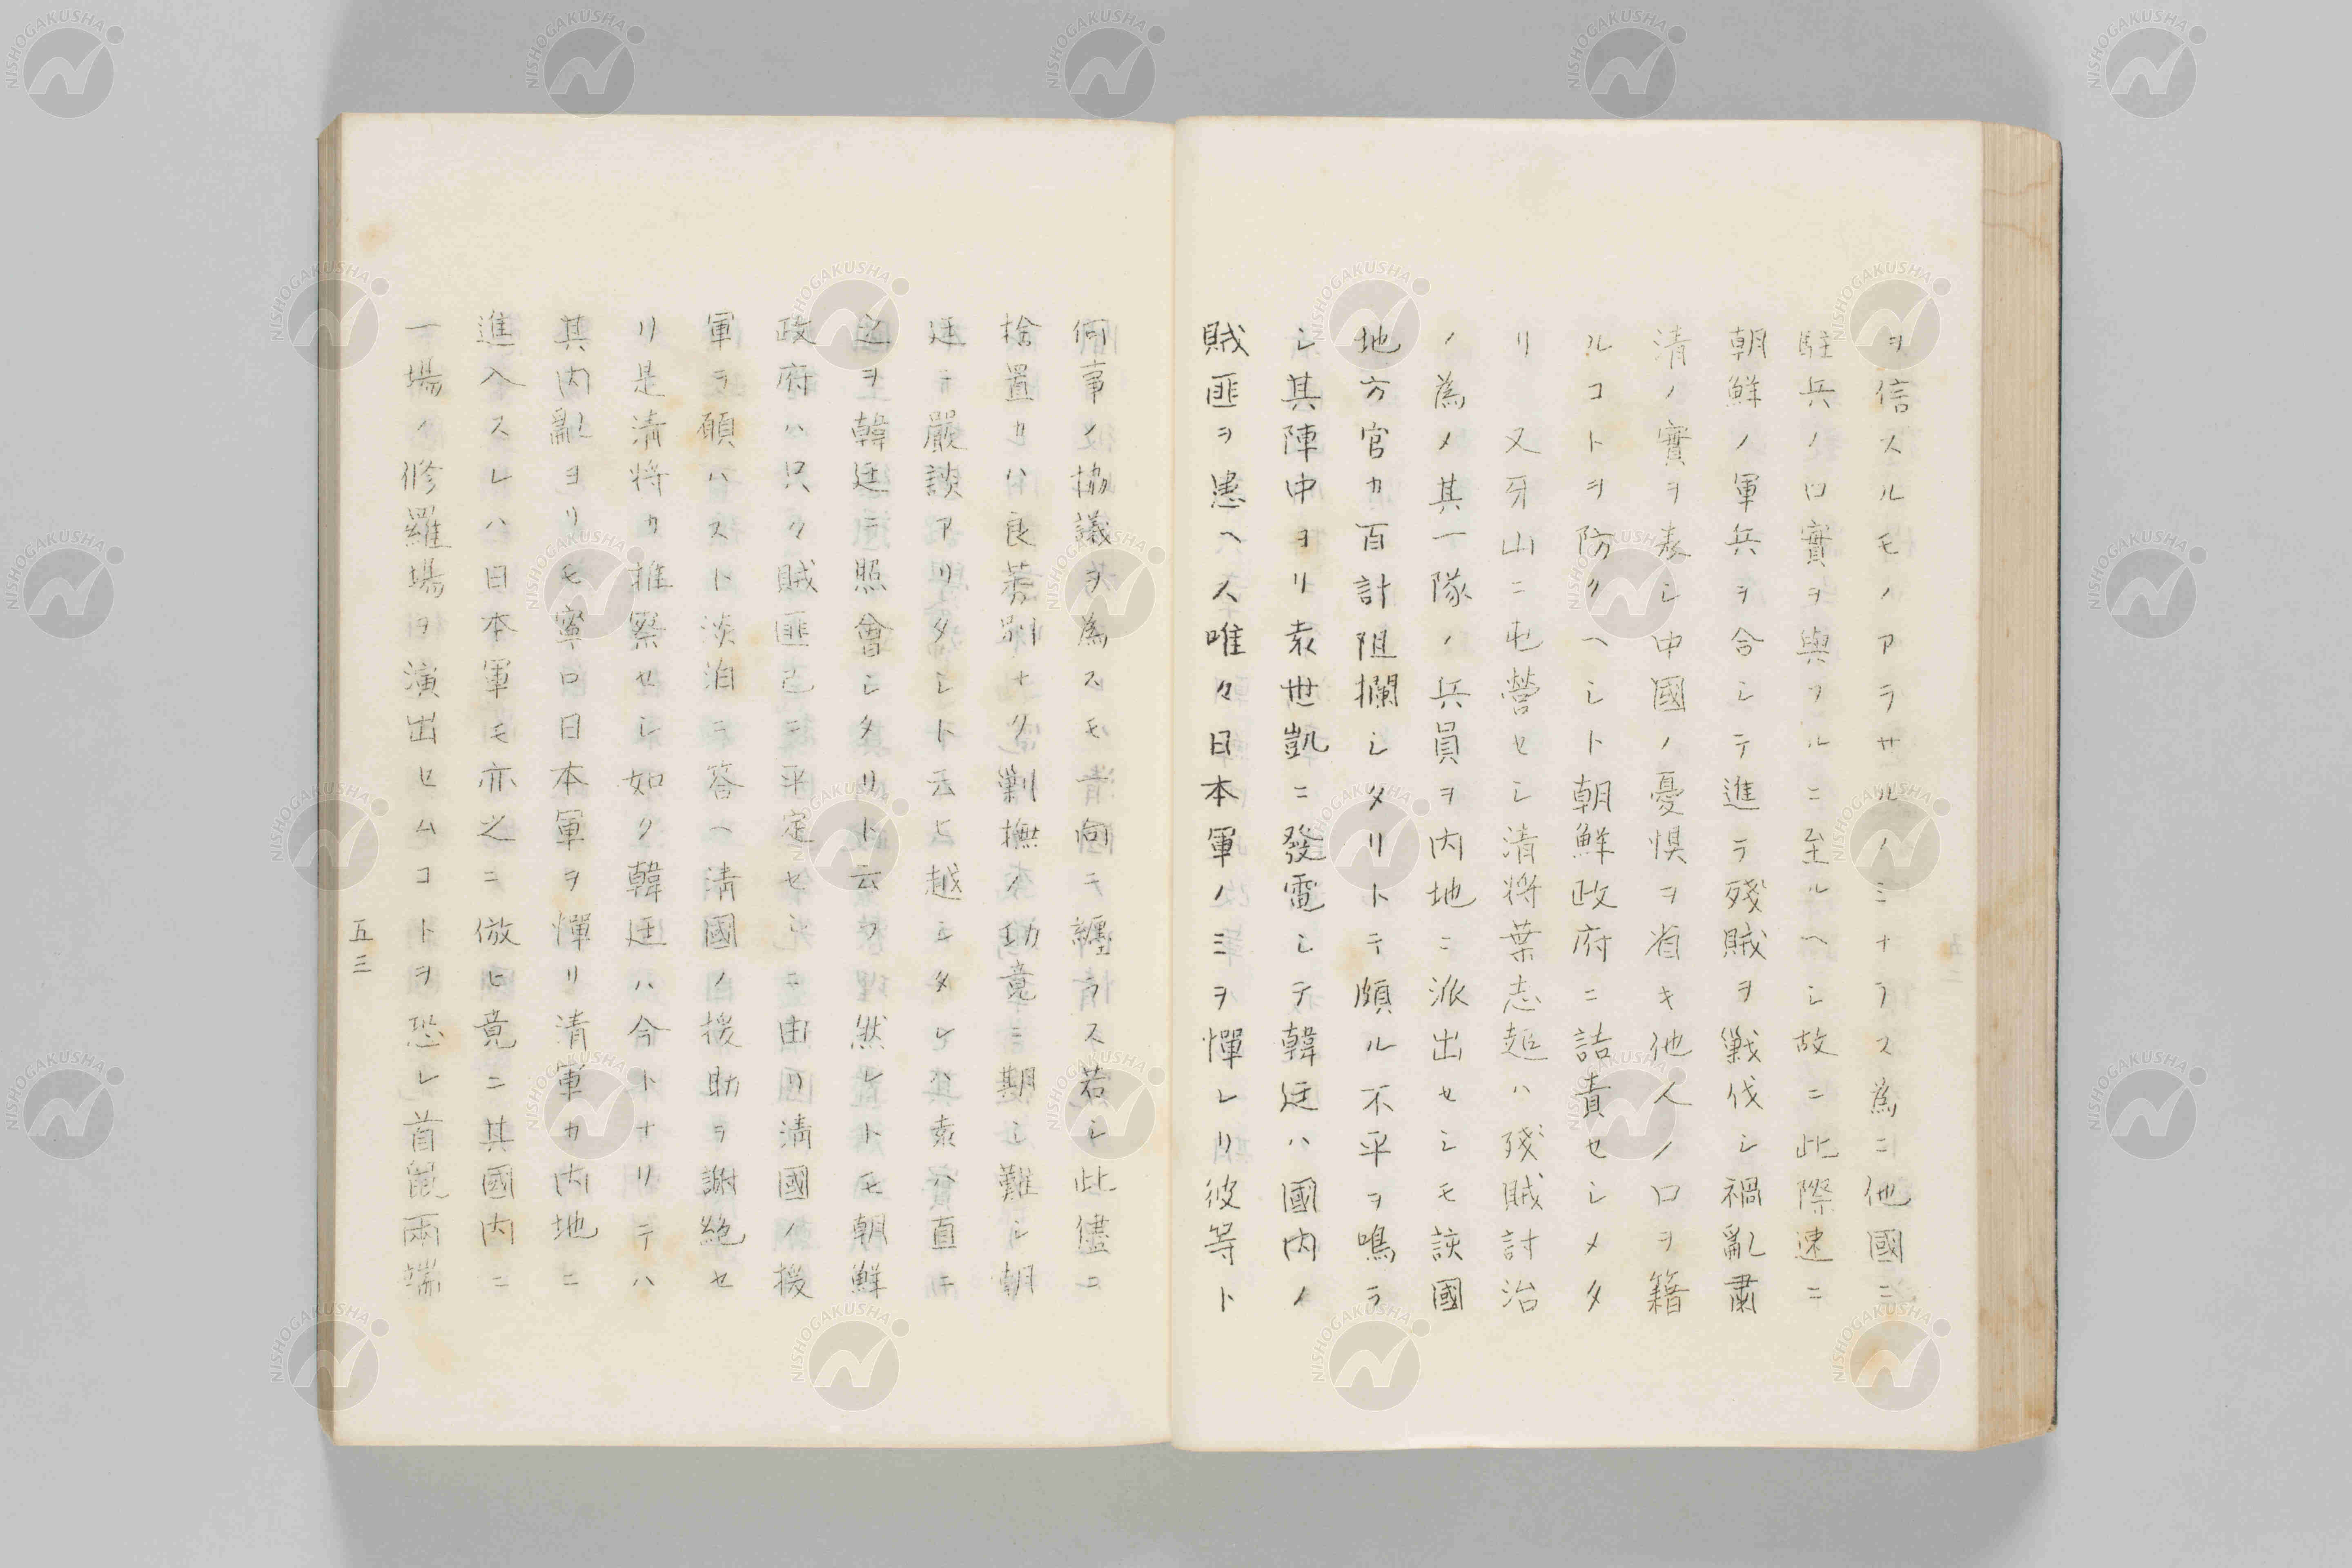 ヲ信スルモノアラサルノミナラス為ニ他國ニ
駐兵ノ口實ヲ與フルニ至ルヘシ故ニ此際速ニ
朝鮮ノ軍兵ヲ合シテ進ラ殘賊ヲ戦伐シ禍亂粛
清ノ實ヲ表シ中國ノ憂惧ヲ省キ他人ノ口ヲ籍
ルコトヲ防クヘシト朝鮮政府ニ詰責セシメタ
リ又牙山ニ屯營セシ清将葉志超ハ殘賊討治
ノ為メ其一隊ノ兵員ヲ内地ニ派出セシモ該國
地方官カ百計阻攔シタリトテ頗ル不平ヲ鳴ラ
シ其陣中ヨリ袁世凱ニ發電シテ韓廷ハ國内ノ
賊匪ヲ患ヘス唯々日本軍ノミヲ憚レリ彼等ト
何事ノ協議ヲ為スモ一向ニ纏ラス若シ此儘ニ
捨置カハ良莠別ナク剿撫ノ功竟ニ期シ難シ朝
廷ニテ嚴談アリタシト云ヒ越シタレハ袁ハ直ニ
之ヲ韓廷ニ照會シタリト云フ然レトモ朝鮮
政府ハ只々賊匪已ニ平定セシニ由リ清國ノ援
軍ヲ願ハスト淡泊ニ答ヘ清國ノ援助ヲ謝絶セ
リ是清将カ推察セシ如ク韓廷ハ今トナリテハ
其内亂ヨリモ寧ロ日本軍ヲ憚リ清軍カ内地ニ
進入スレハ日本軍モ亦之ニ倣ヒ竟ニ其國内ニ
一場ノ修羅場ヲ演出セムコトヲ恐レ首鼠兩端
五三